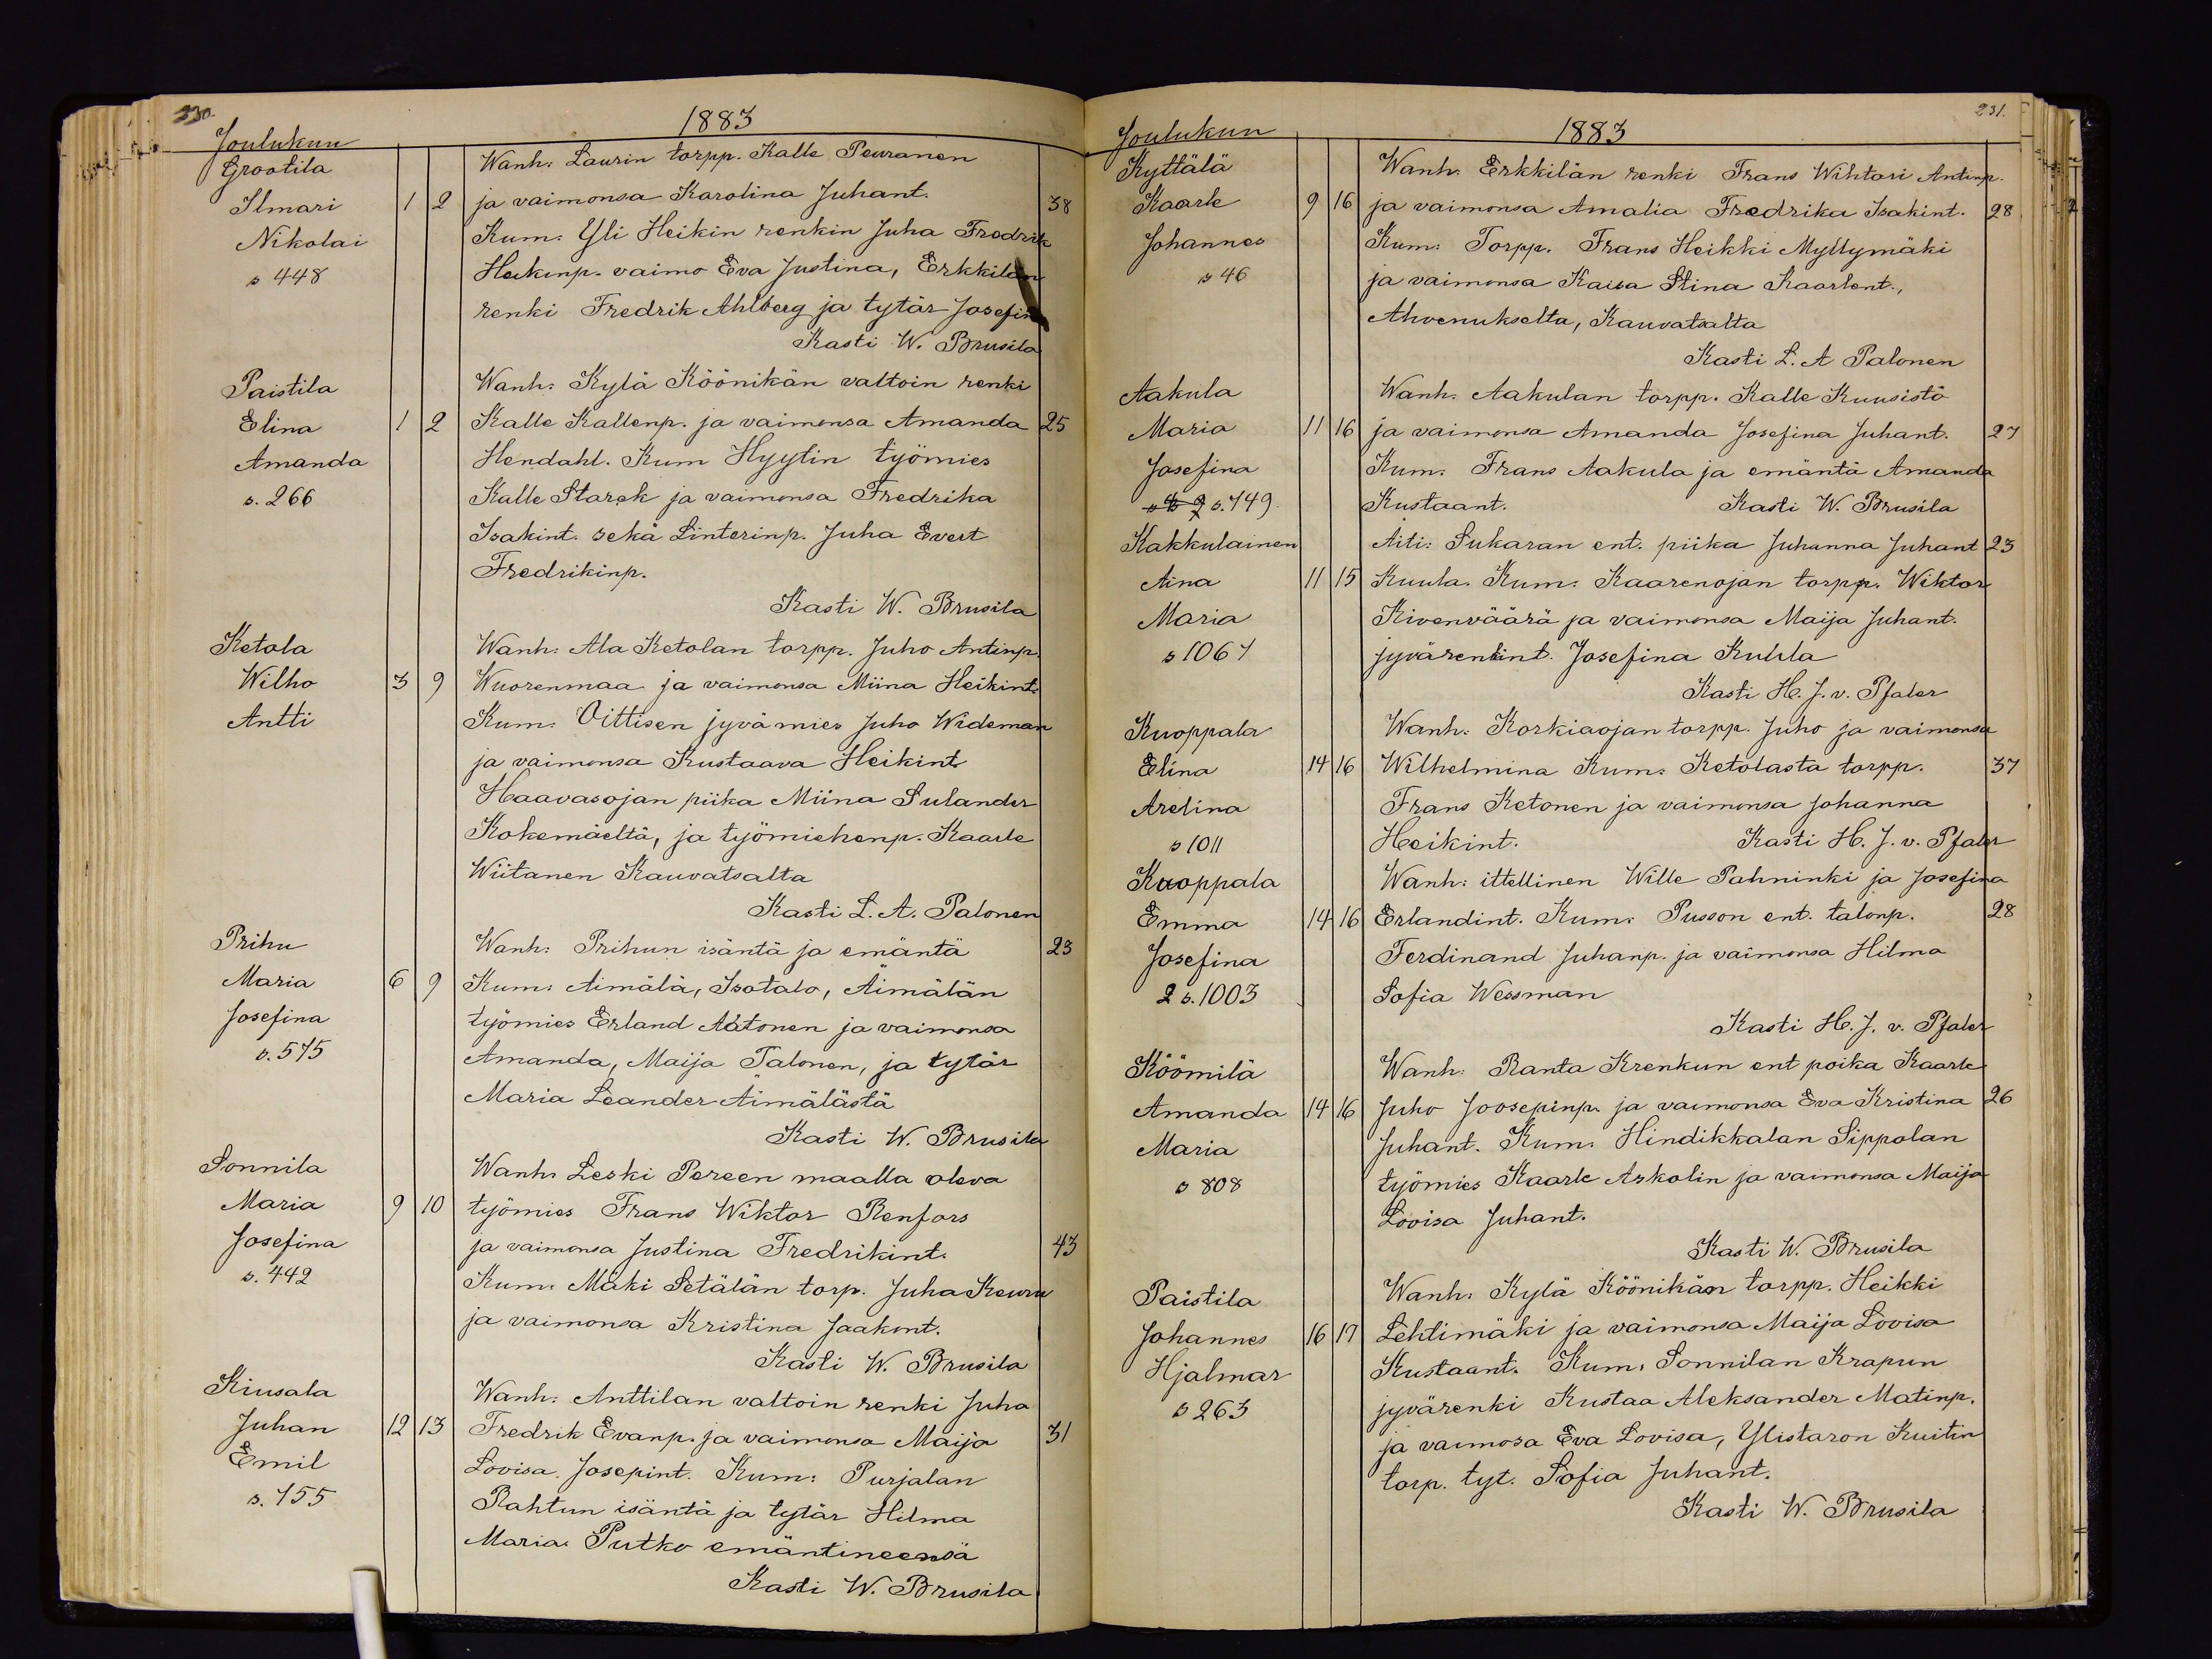 230.
1883
Joulukun
Grootila
Wanh: Laurin torpp. Kalle Peuranen
Ilmari 1 2 ja vaimonsa Karolina Juhant. 38
Nikolai Kum: Yli Heikin renkin Juha Fredrik
s 448 Heikinp. vaimo Eva Justina, Erkkilän
renki Fredrik Ahlberg ja tytär Josefin
Kasti W. Brusila
Paistila Wanh: Kylä Köönikän valtoin renki
Elina 1 2 Kalle Kallenp. ja vaimonsa Amanda 25
Amanda Hendahl. Kum Hyytin työmies
s. 266 Kalle Starck ja vaimonsa Fredrika
Isakint. sekä Linterinp. Juha Evert
Fredrikinp.
Kasti W. Brusila
Ketola Wanh: Ala Ketolan torpp. Juho Antinp.
Wilho 3 9 Wuorenmaa ja vaimonsa Miina Heikint.
Antti Kum: Vittisen jyvämies Juho Wideman
ja vaimonsa Kustaava Heikint
Haavasojan piika Miina Sulander
Kokemäeltä, ja työmiehenp. Kaarle
Wiitanen Kauvatsalta
Kasti L. A. Palonen
Prihu Wanh: Prihun isäntä ja emäntä 23
Maria 6 9 Kum: Äimälä, Isotalo, Äimälän
Josefina työmies Erland Aatonen ja vaimonsa
s. 575 Amanda, Maija Talonen, ja tytär
Maria Leander Äimälästä
Kasti W. Brusila
Sonnila Wanh: Leski Pereen maalla oleva
Maria 9 10 työmies Frans Wiktor Renfors
Josefina ja vaimonsa Justina Fredrikint. 43
s. 442 Kum: Mäki Setälän torp. Juha Keuru
ja vaimonsa Kristina Jaakont.
Kasti W. Brusila
Kiusala Wanh: Anttilan valtoin renki Juha
Juhan 12 13 Fredrik Evanp. ja vaimonsa Maija 31
Emil Lovisa Josepint. Kum: Purjalan
s. 155 Rahtun isäntä ja tytär Hilma
Maria Putko emäntineensä
Kasti W. Brusila
231.
1883
Joulukun
Kyttälä Wanh: Erkkilän renki Frans Wihtori Antinp.
Kaarle 9 16 ja vaimonsa Amalia Fredrika Isakint. 28
Johannes Kum: Torpp. Frans Heikki Myllymäki
s 46 ja vaimonsa Kaisa Stina Kaarlent.,
Ahvenukselta, Kauvatsalta
Kasti L. A Palonen
Aakula Wanh: Aakulan torpp. Kalle Kuusisto
Maria 11 16 ja vaimonsa Amanda Josefina Juhant. 27
Josefina Kum: Frans Aakula ja emäntä Amanda
s. 149. Kustaant. Kasti W. Brusila
Kakkulainen Äiti: Sukaran ent. piika Juhanna Juhant 23
Aina 11 15 Kuula. Kum: Kaarenojan torpp. Wiktor
Maria Kivenväärä ja vaimonsa Maija Juhant.
s 1067 jyvärenkint. Josefina Kuhla
Kasti H. J. v. Pfaler
Kuoppala Wanh: Korkiaojan torpp. Juho ja vaimonsa
Elina 14 16 Wilhelmina Kum: Ketolasta torpp. 37
Arelina Frans Ketonen ja vaimonsa Johanna
s 1011 Heikint. Kasti H. J. v. Pfaler
Kuoppala Wanh: ittellinen Wille Pahninki ja Josefina
Emma 14 16 Erlandint. Kum: Pusson ent. talonp. 28
Josefina Ferdinand Juhanp. ja vaimonsa Hilma
2 s. 1003 Sofia Wessman
Kasti H. J. v. Pfaler
Köömilä Wanh: Ranta Krenkun ent poika Kaarle
Amanda 14 16 Juho Joosepinp. ja vaimonsa Eva Kristina 26
Maria Juhant. Kum: Hindikkalan Sippolan
s 808 työmies Kaarle Askolin ja vaimonsa Maija
Lovisa Juhant.
Kasti W. Brusila
Paistila Wanh: Kylä Köönikän torpp. Heikki
Johannes 16 17 Lehtimäki ja vaimonsa Maija Lovisa
Hjalmar Kustaant. Kum: Sonnilan Krapun
s 263 jyvärenki Kustaa Aleksander Matinp.
ja vaimosa Eva Lovisa, Ylistaron Kuitin
torp. tyt. Sofia Juhant.
Kasti W. Brusila